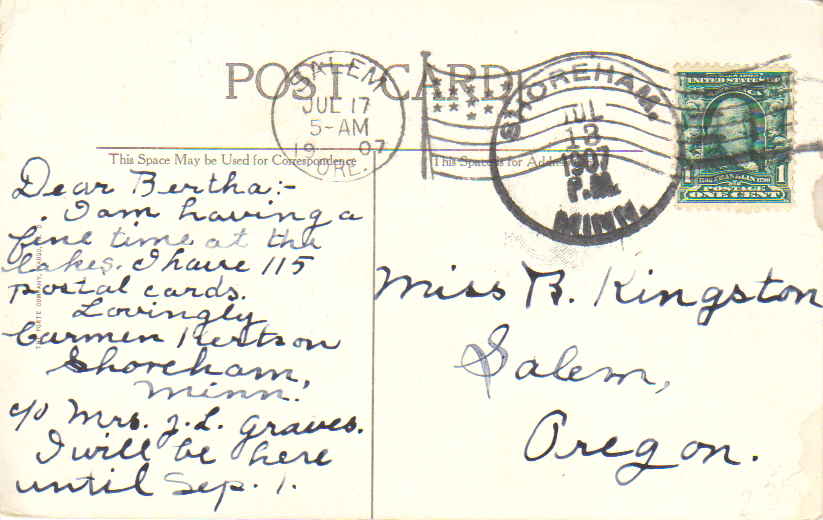 POST CARD
SALEM
JUL 17
5-AM
19 07
ORE.
SHOREHAM,
JUL
13
1907
P.M.
MINN.
UNITED STATES
FRANKLIN
1 1
POSTAGE
ONE CENT
This Space May be Used for Correspondence
This Space is for Address
Dear Bertha:-
I am having a
fine time at the
lakes. I have 115
postal cards.
Lovingly
Carmen Hertson
Shoreham,
Minn.
c/o Mrs. J. L. Graves.
I will be here
until Sep. 1.
Miss B. Kingston
Salem,
Oregon.